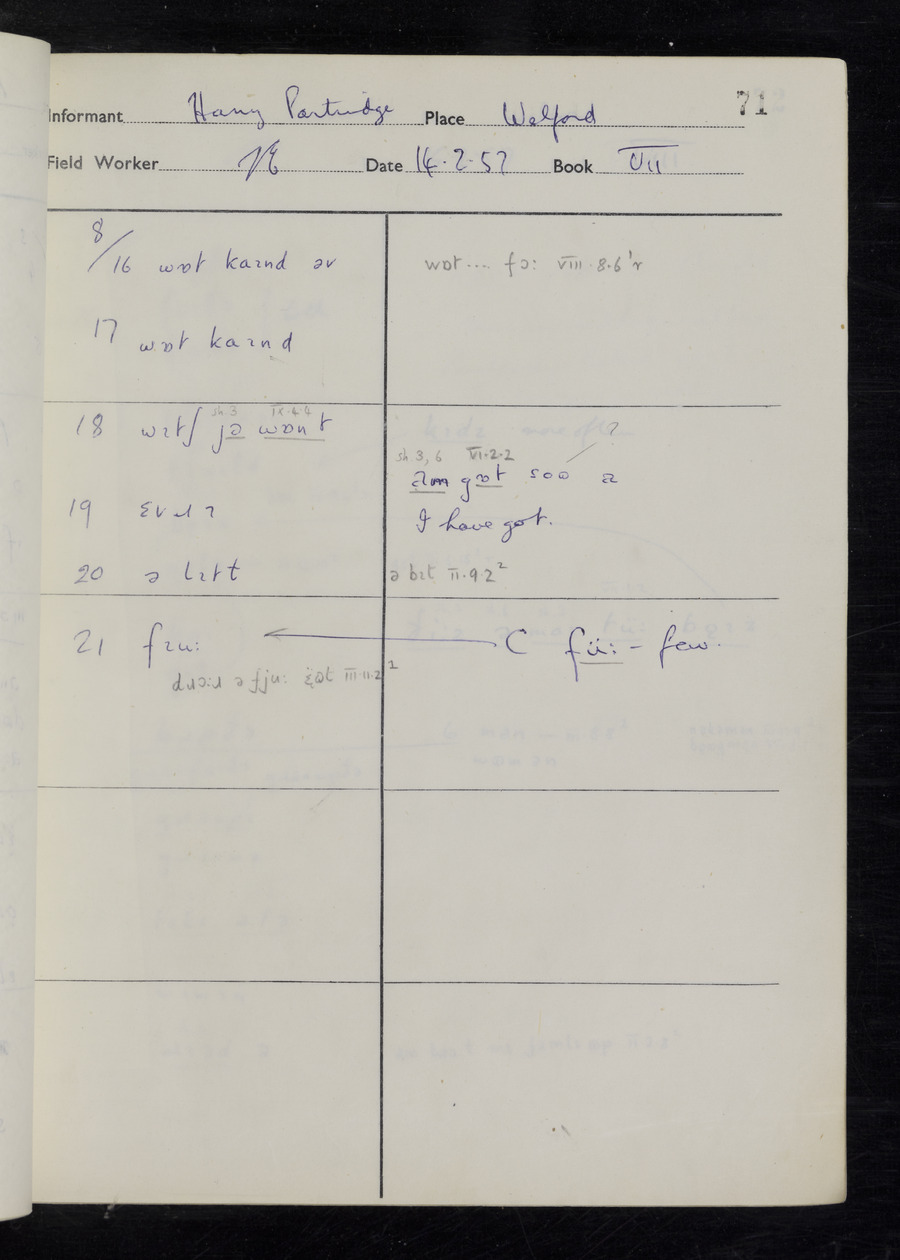 71
Informant Harry Partridge Place Welford
Field Worker Date 14.2.57 Book VII
8/16 wɒt kaɪnd əv
wɒt.... fɔ: VIII.8.6
17 wɒt kaɪnd
18 wɪtʃ jə wɒnt
sh 3 IX.4.4
sh 3, 6 VI.2.2
?
gɒt
19 ɛvɹɪ
I have got.
20 ə lɪtt
ə bɪt II.9.2²
21 fɪu:
C fü: – few.
dɹɔ:ɹ ə fju: III.11.2¹